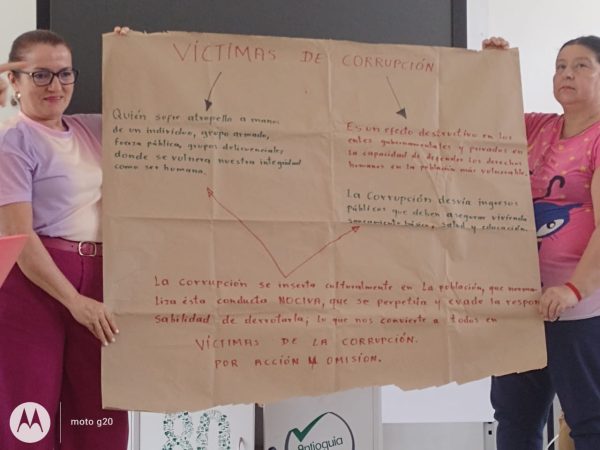 VÍCTIMAS DE CORRUPCIÓN
Quién sufre atropello a mano
de un individuo, grupo armado,
fuerza pública, grupos delicuenciales
donde se vulnera nuestra integridad
como ser humano.
Es un efecto destructivo en los
entes gubernamentales y privados en
la capacidad de defender los derechos
humanos en la población más vulnerable.
La Corrupción desvía ingresos
públicos que deben asegurar vivienda
saneamiento básico, salud y educación.
La corrupción se inserta culturalmente en La población, que norma-
liza ésta conducta NOCIVA, que se perpetúa y evade la respon-
sabilidad de derrotarla; lo que nos convierte a todos en
VÍCTIMAS DE LA CORRUPCIÓN.
POR ACCIÓN Y OMISION.
moto g20
80
Antioquia